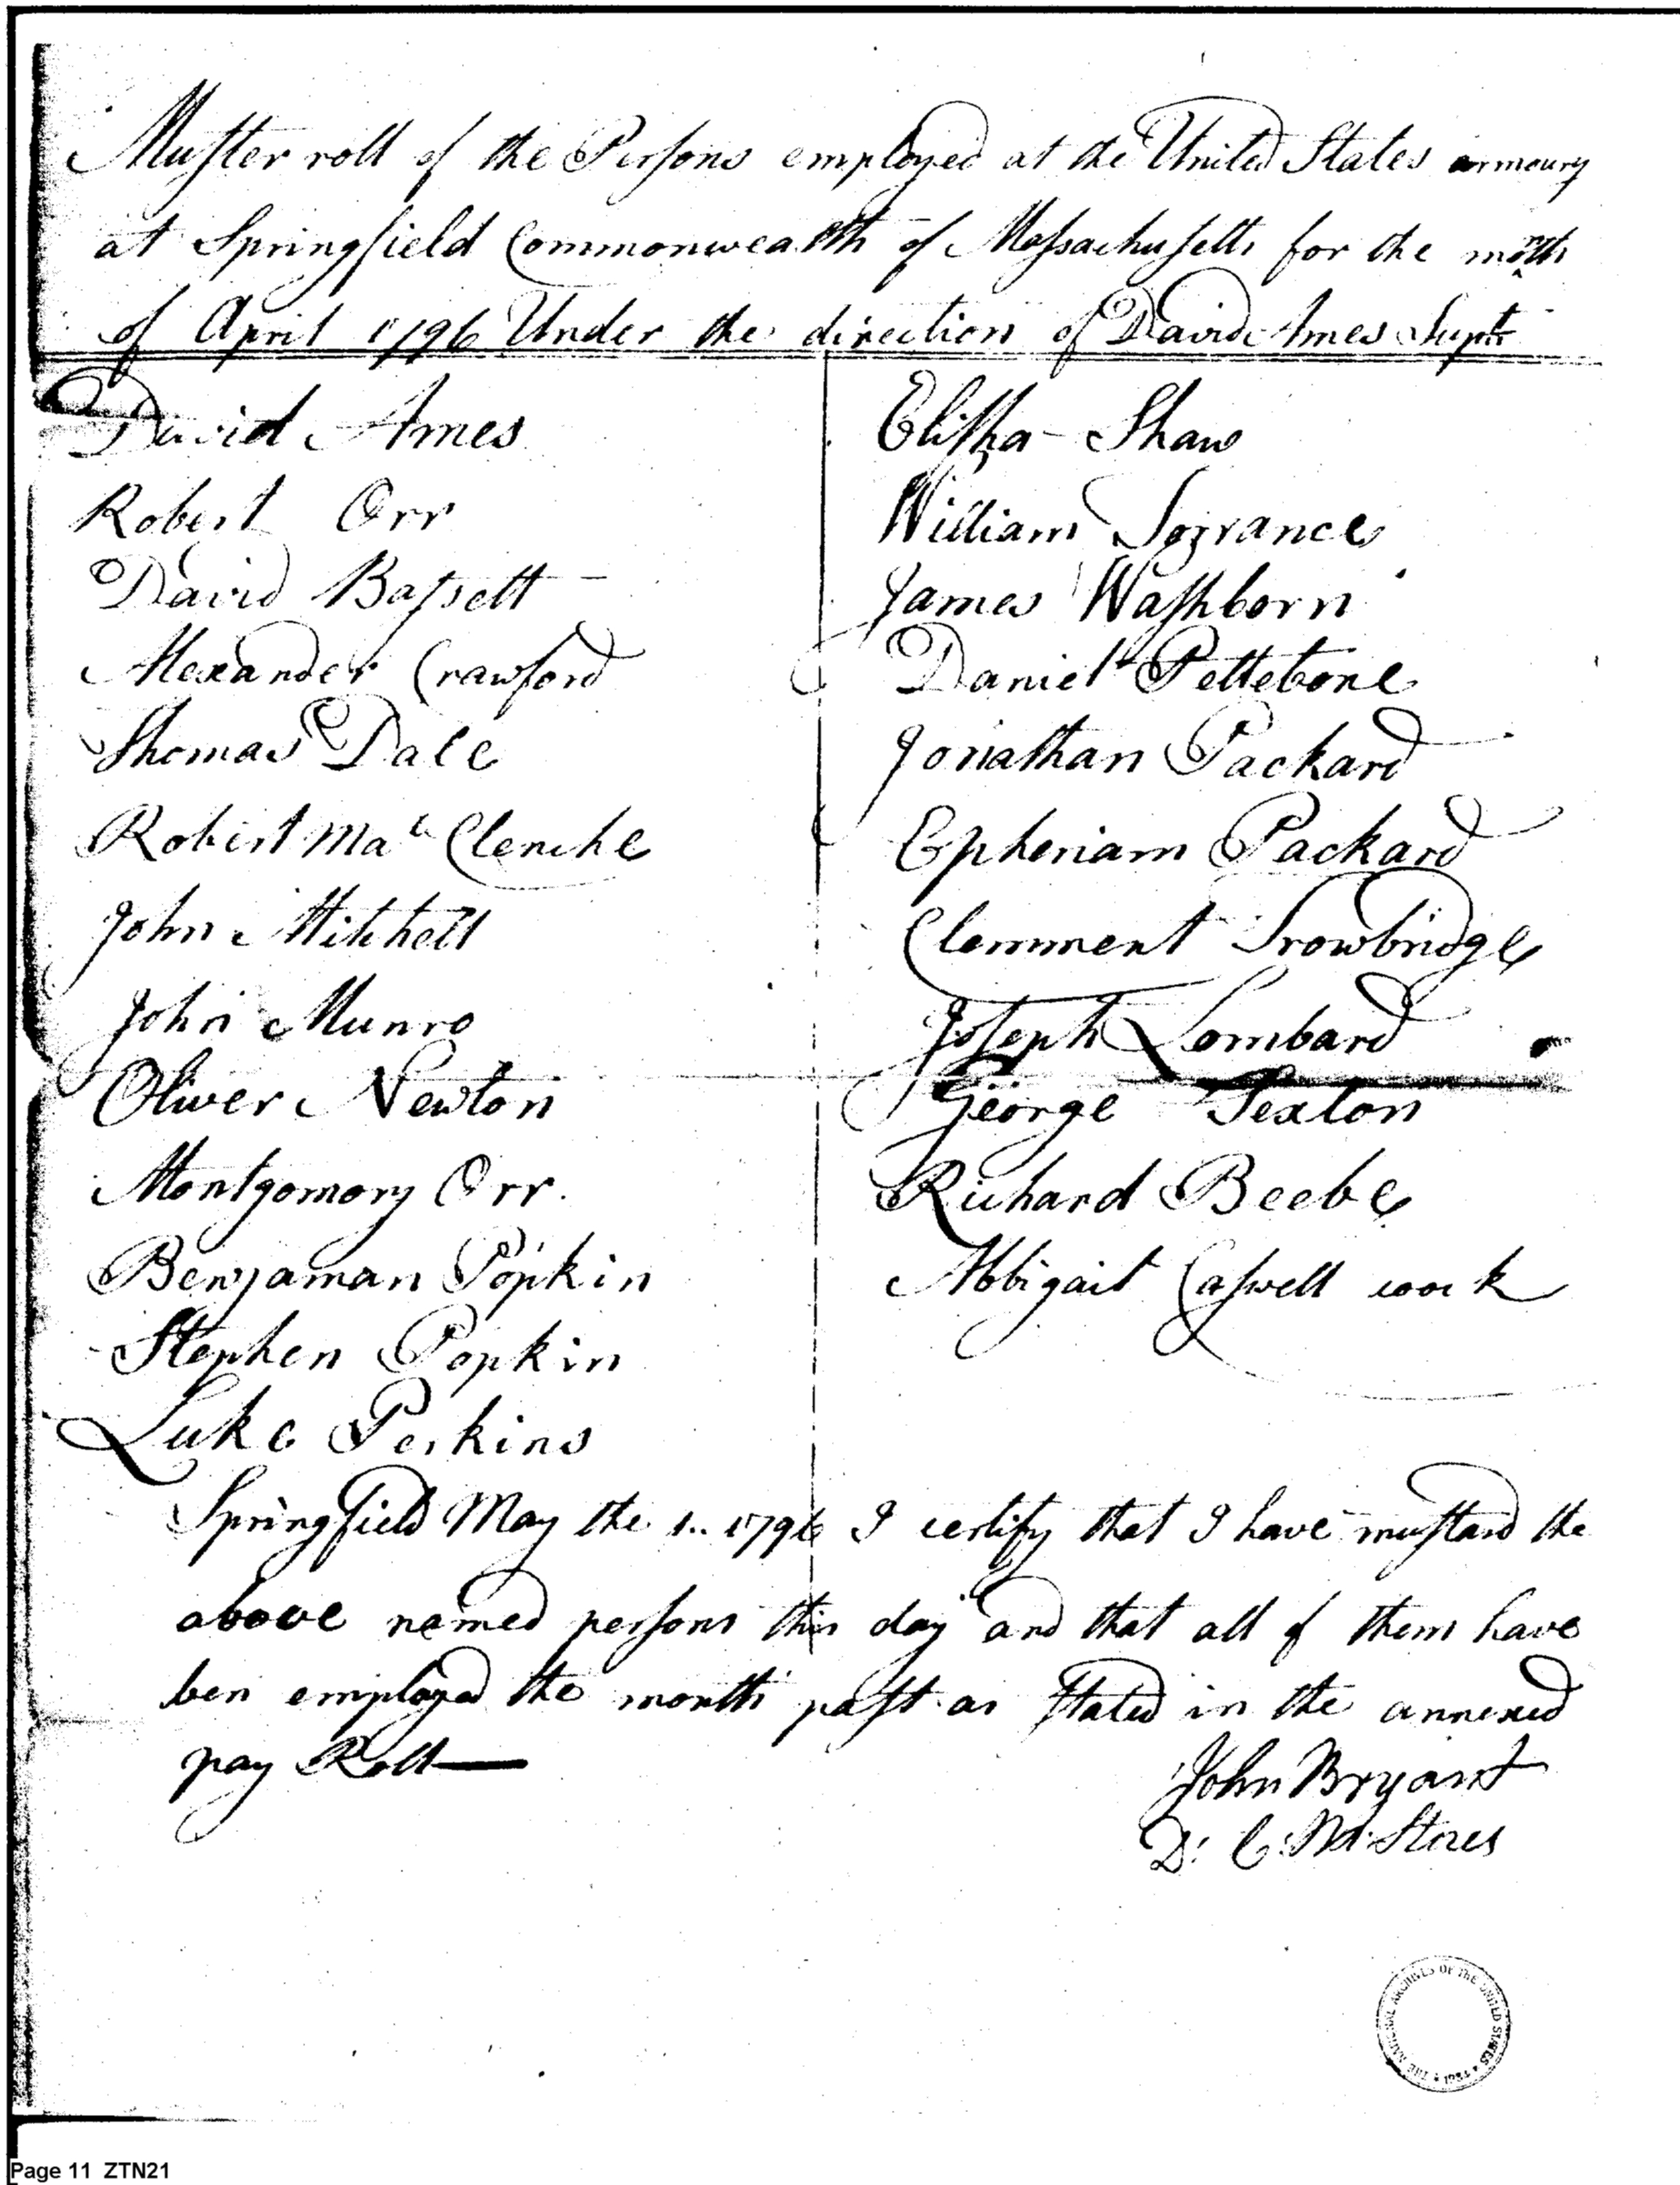 Muster roll of the Persons employed at the United States armoury
at Springfield Commonwealth of Massachusetts for the month
of April 1796 Under the direction of David Ames Supt
David Ames
Robert Orr
David Bassett
Alexander Crawford
Thomas Dale
Robert Mac Clenche
John Mitchell
John Munro
Oliver Newton
Montgomory Orr.
Benjaman Popkin
Stephen Popkin
Luke Perkins
Elisha Shaw
William Torrance
James Washborn
Daniel Pettebone
Jonathan Packard
Epheriam Packard
Clemment Trowbridge
Joseph Lombard
George Sexton
Richard Beebe
Abbigail Caswell cook
Springfield May the 1.. 1796 I certify that I have mustard the
above named persons this day and that all of them have
ben employed the month past as stated in the annexed
pay Roll
John Bryant
D. C. M. Stores
THE NATIONAL ARCHIVES OF THE UNITED STATES • 1934
Page 11 ZTN21